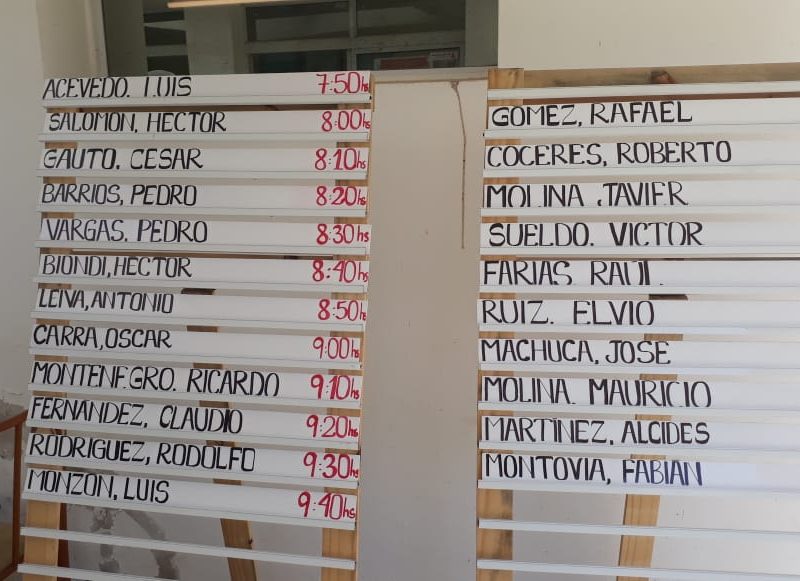 ACEVEDO. LUIS 7:50hs
SALOMON, HECTOR 8:00hs
GAUTO. CESAR 8:10hs
BARRIOS, PEDRO 8:20hs
VARGAS. PEDRO 8:30hs
BIONDI, HECTOR 8:40hs
LEIVA, ANTONIO 8:50hs
CARRA, OSCAR 9:00hs
MONTENEGRO. RICARDO 9:10hs
FERNANDEZ, CLAUDIO 9:20hs
RODRIGUEZ, RODOLFO 9:30hs
MONZON, LUIS 9:40hs
GOMEZ, RAFAEL
COCERES, ROBERTO
MOLINA, JAVIER
SUELDO. VICTOR
FARIAS RAUL
RUIZ. ELVIO
MACHUCA, JOSE
MOLINA. MAURICIO
MARTÍNEZ, ALCIDES
MONTOVIA, FABIAN